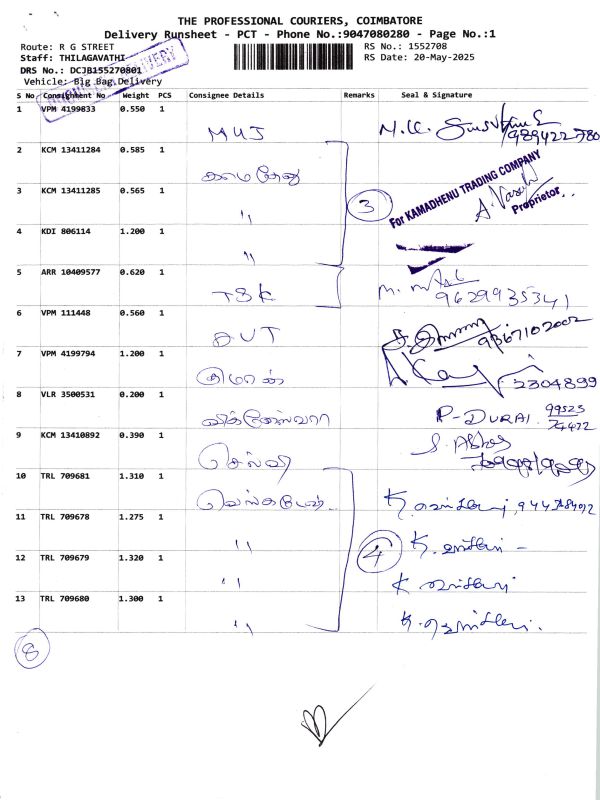 THE PROFESSIONAL COURIERS, COIMBATORE
Delivery Runsheet - PCT - Phone No.:9047080280 - Page No.:1
Route: R G STREET
RS No.: 1552708
Staff: THILAGAVATHI
RS Date: 20-May-2025
DRS No.: DCJB155270801
Vehicle: Big Bag Delivery
S No Consignment No Weight PCS Consignee Details Remarks Seal & Signature
1 VPM 4199833 0.550 1 MUJ M.K.
2 KCM 13411284 0.585 1 காமதேனு
3 KCM 13411285 0.565 1 " 3 For KAMADHENU TRADING COMPANY
Proprietor
4 KDI 806114 1.200 1 "
5 ARR 10409577 0.620 1 TSK 9629935341
6 VPM 111448 0.560 1 9367102002
7 VPM 4199794 1.200 1 2304899
8 VLR 3500531 0.200 1 விக்னேஸ்வரா P-DURAI 99523
74472
9 KCM 13410892 0.390 1 செல்வி
10 TRL 709681 1.310 1
11 TRL 709678 1.275 1 " 4
12 TRL 709679 1.320 1 "
13 TRL 709680 1.300 1 "
8